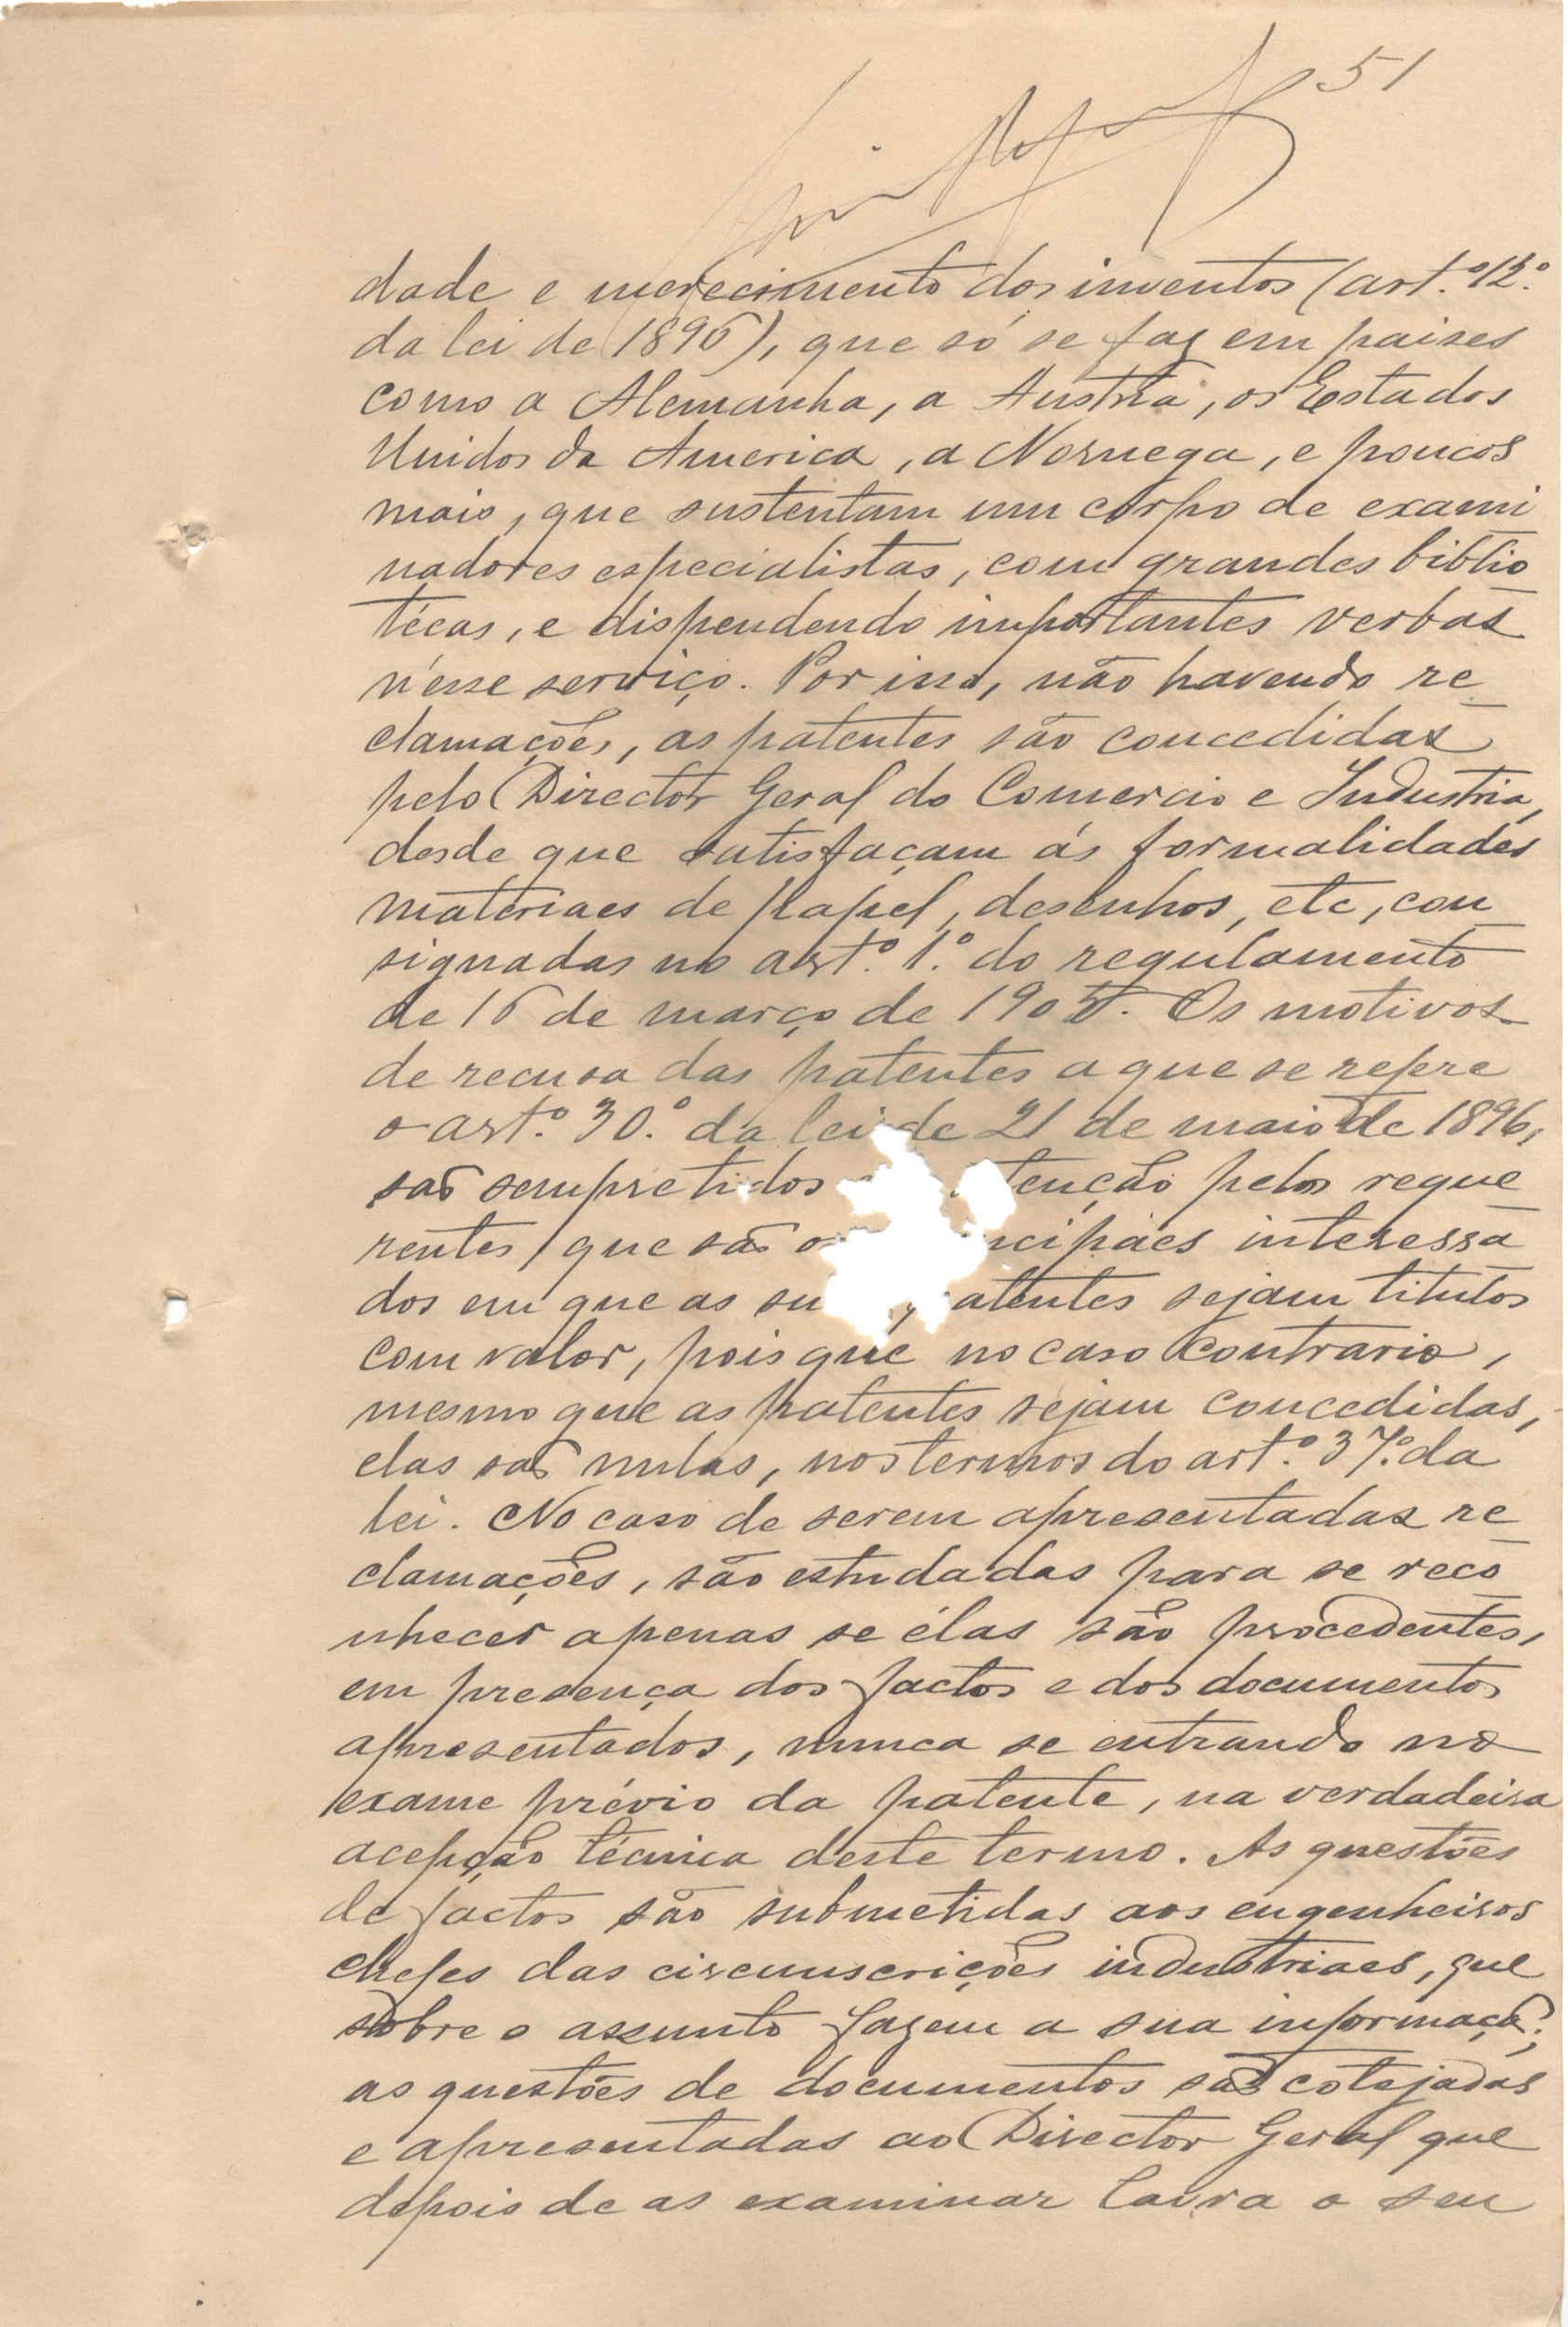 51
dade e merecimento dos inventos (art.º 12.º
da lei de 1896), que só se faz em paises
como a Alemanha, a Austria, os Estados
Unidos da America, a Noruega, e poucos
mais, que sustentam um corpo de exami
nadores especialistas, com grandes biblio
técas, e dispendendo importantes verbas
n'esse serviço. Por isso, não havendo re
clamações, as patentes são concedidas
pelo Director Geral do Comercio e Industria,
desde que satisfaçam ás formalidades
materiaes de papel, desenhos, etc, con
signadas no art.º 1.º do regulamento
de 16 de março de 1905. Os motivos
de recusa das patentes a que se refere
o art.º 30.º da lei de 21 de maio de 1896,
são sempre tidos tenção pelos reque
rentes, que são ncipaes interessa
dos em que as su atentes sejam titulos
com valor, pois que no caso contrario,
mesmo que as patentes sejam concedidas,
elas são nulas, nos termos do art.º 37.º da
lei. No caso de serem apresentadas re
clamações, são estudadas para se reco
nhecer apenas se élas são procedentes,
em presença dos factos e dos documentos
apresentados, nunca se entrando no
exame prévio da patente, na verdadeira
acepção técnica deste termo. As questões
de factos são submetidas aos engenheiros
chefes das circunscrições industriaes, que
sobre o assunto fazem a sua informação;
as questões de documentos são cotejadas
e apresentadas ao Director Geral que
depois de as examinar lavra o seu